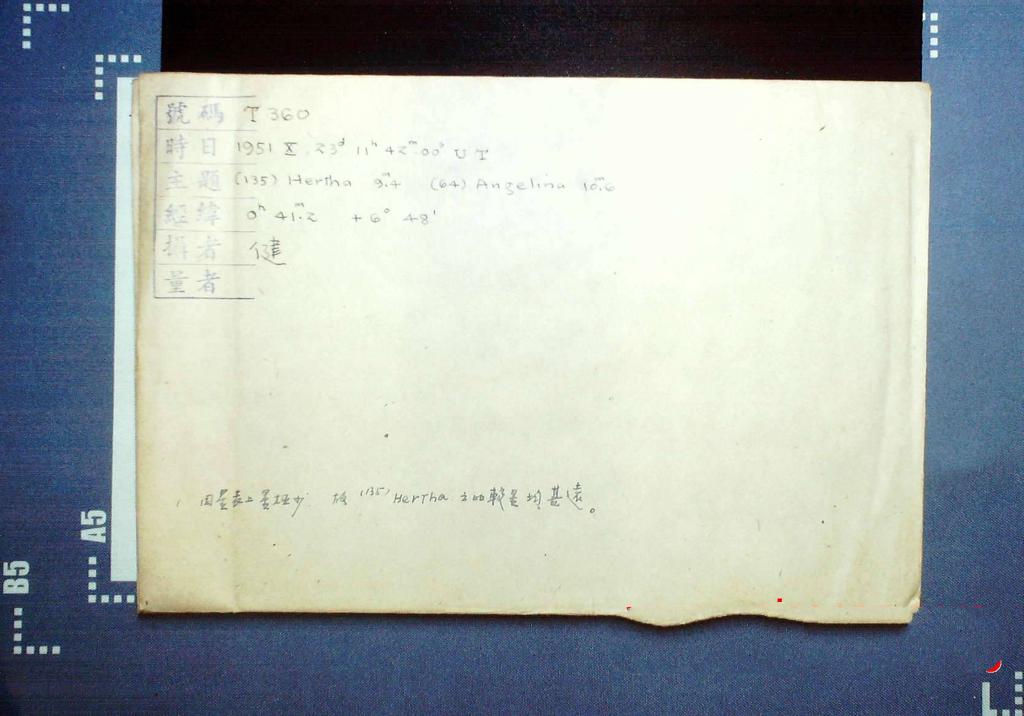 號碼 T 360
時日 1951 X 23ᵈ 11ʰ 42ᵐ.00ˢ UT
主題 (135) Hertha 9ᵐ.4 (64) Angelina 10ᵐ.6
經緯 0ʰ 41ᵐ.2 +6° 48'
攝者 健
量者
因星表上星極少 (135) Hertha 之的較星均甚遠。
A5
B5